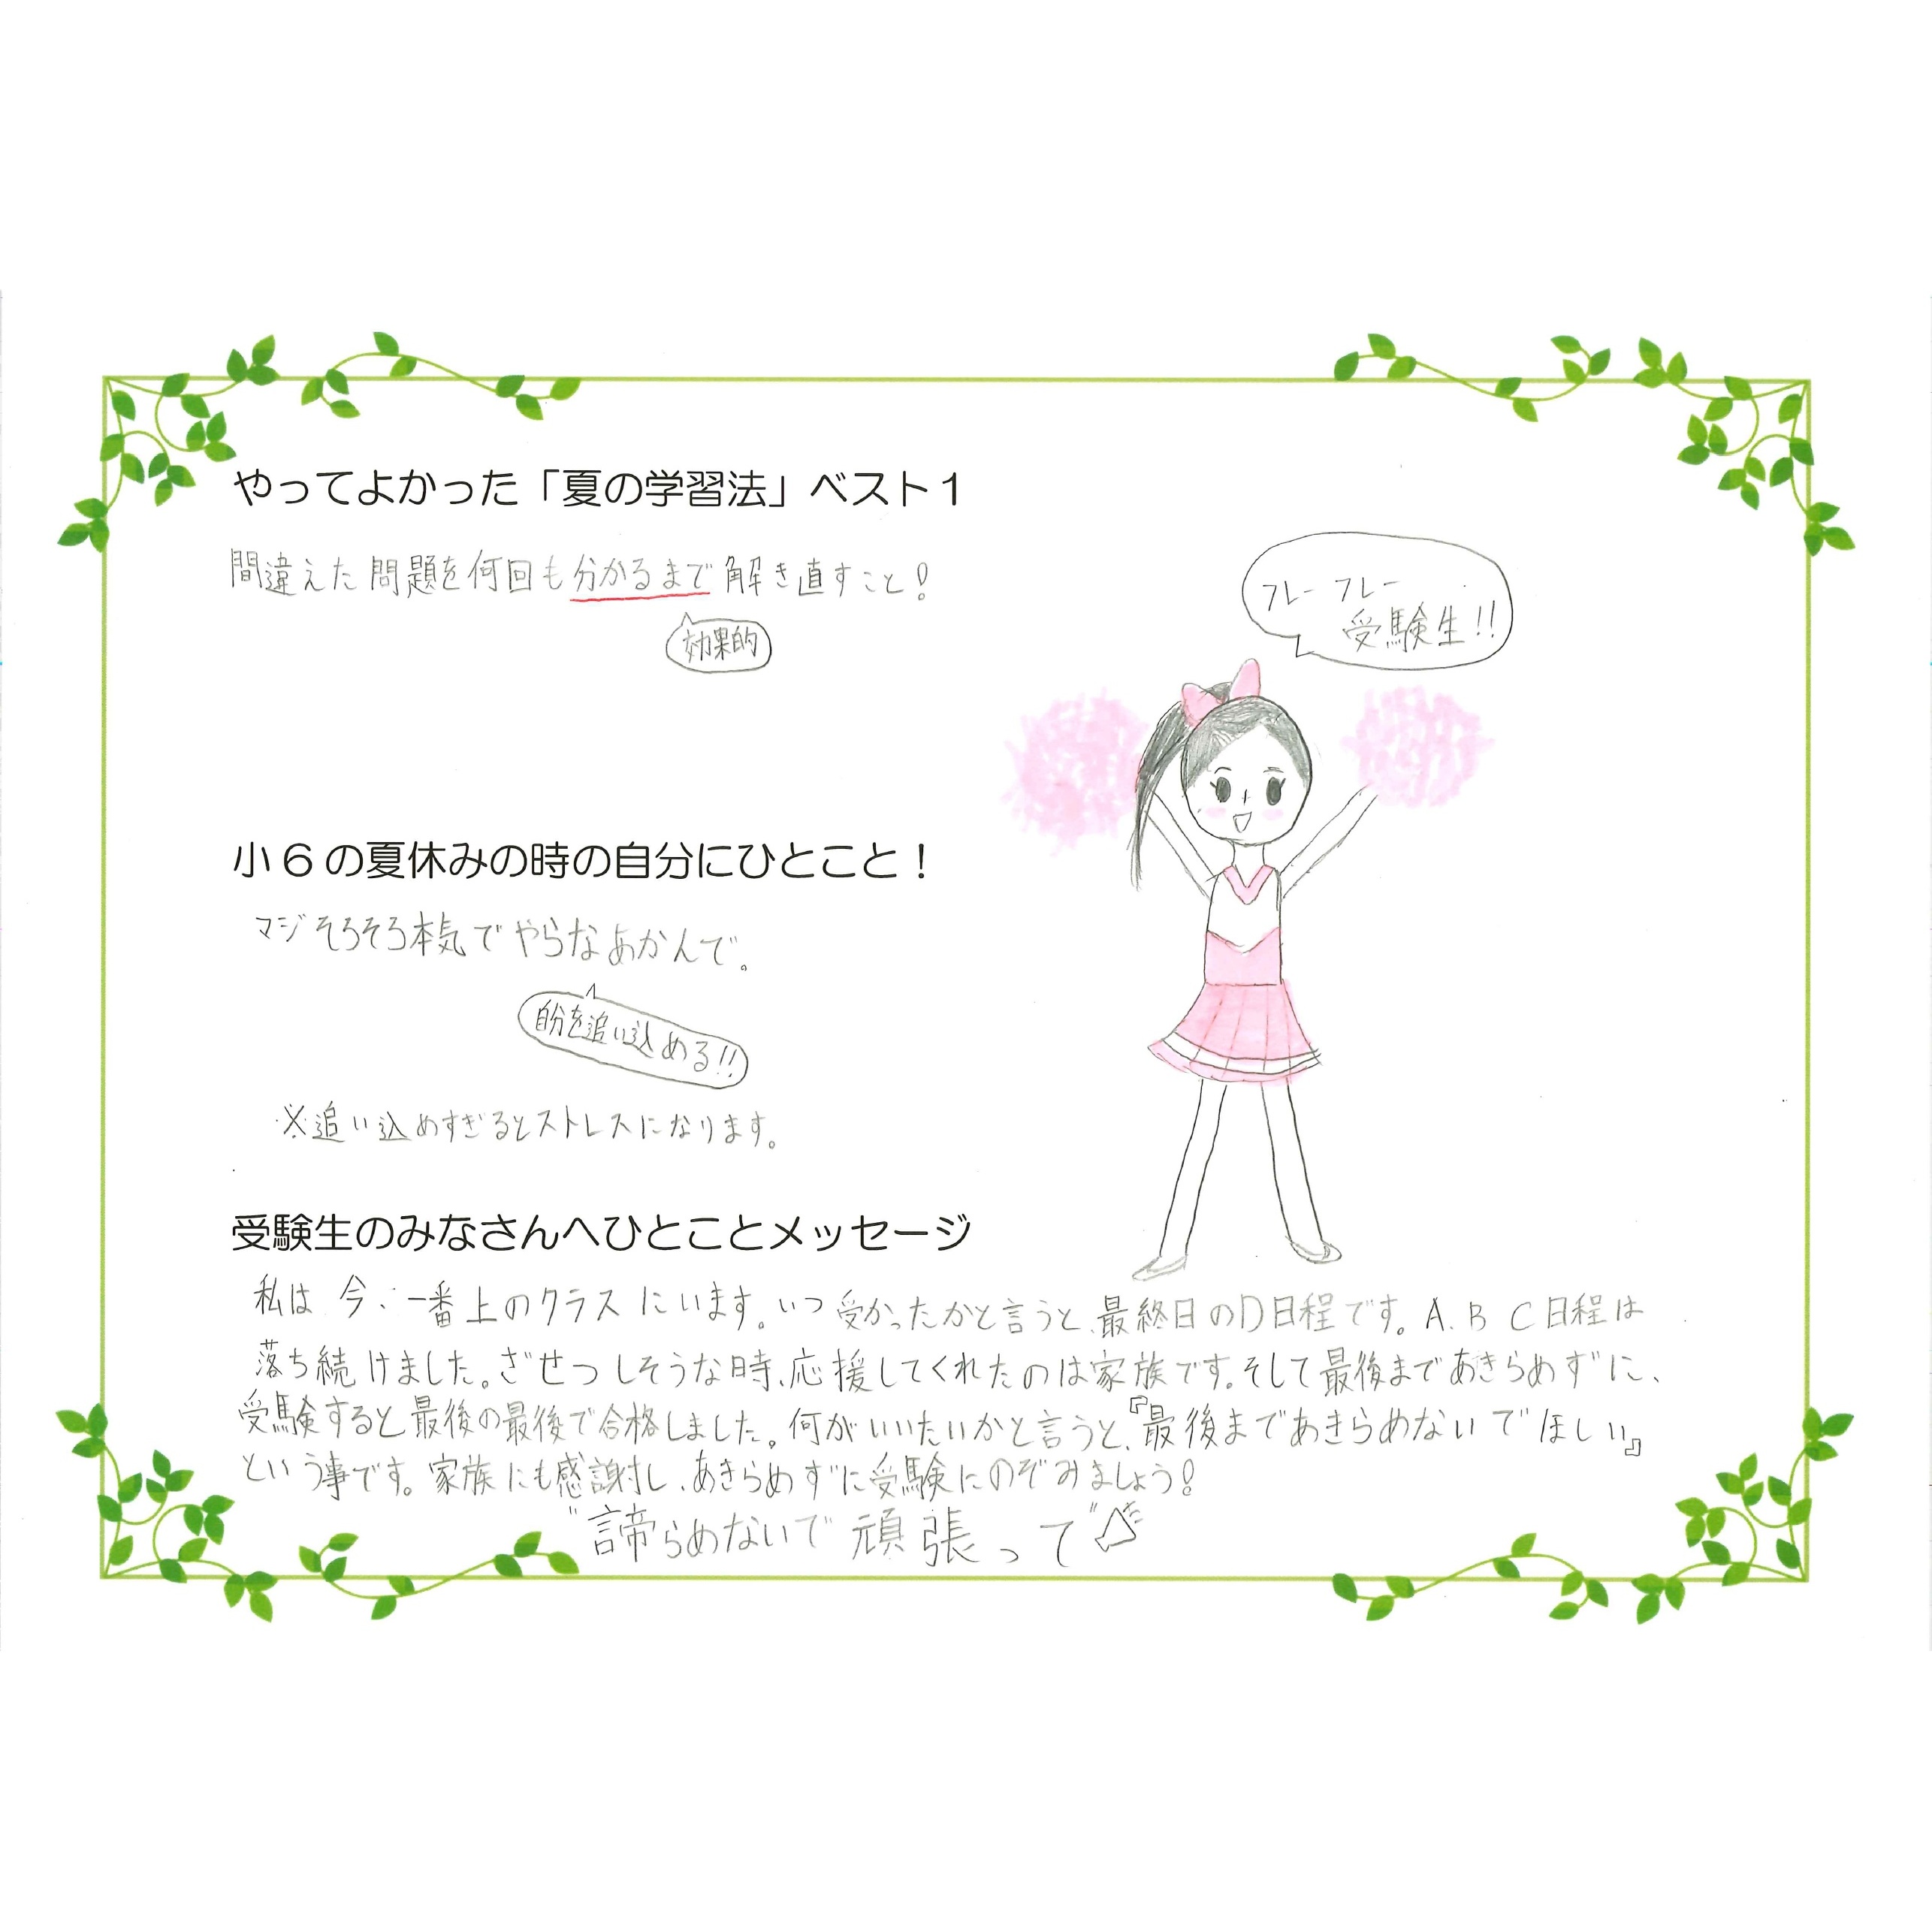 やってよかった「夏の学習法」ベスト１
間違えた問題を何回も分かるまで解き直すこと！
効果的
フレーフレー
受験生!!
小６の夏休みの時の自分にひとこと！
マジそろそろ本気でやらなあかんで。
自分を追い込める!!
※追い込めすぎるとストレスになります。
受験生のみなさんへひとことメッセージ
私は今、一番上のクラスにいます。いつ受かったかと言うと、最終日のD日程です。A.B C日程は
落ち続けました。ざせつしそうな時、応援してくれたのは家族です。そして最後まであきらめずに、
受験すると最後の最後で合格しました。何がいいたいかと言うと、『最後まであきらめないでほしい』
という事です。家族にも感謝し、あきらめずに受験にのぞみましょう！
"諦らめないで頑張って"